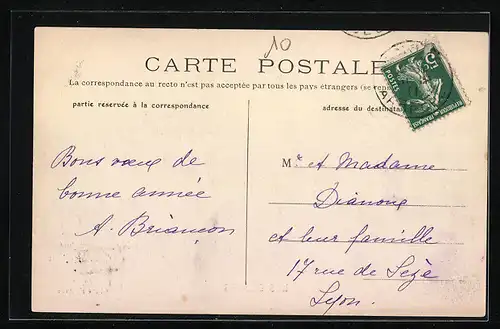 10
CARTE POSTALE
La correspondance au recto n'est pas acceptée par tous les pays étrangers (se
partie réservée à la correspondance
adresse du destinat
5c
POSTES
REPUBLIQUE FRANÇAISE
Bons vœux de
bonne année
A. Briançon
Mr et Madame
Dianoux
et leur famille
17 rue de Sèze
Lyon.